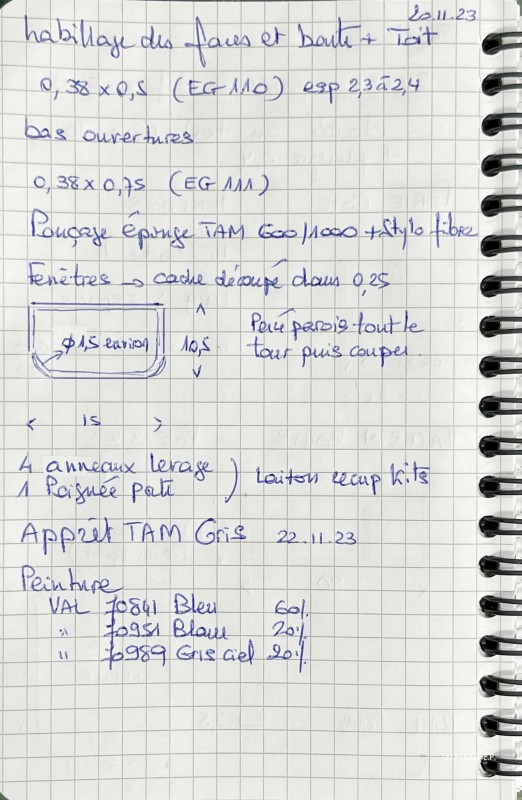 20.11.23
habillage des faces et bouts + Toit
0,38 x 0,5 (EG 110) esp 2,3 à 2,4
bas ouvertures
0,38 x 0,75 (EG 111)
Ponçage éponge TAM 600/1000 + Stylo fibre
Fenêtres → cadre découpé dans 0,25
φ 1,5 environ
10,5
15
tout le
tour puis couper.
4 anneaux levage
1 Poignée porte
) Laiton recup kits
Apprêt TAM Gris 22.11.23
Peinture
VAL 70841 Bleu 60%
" 70951 Blanc 20%
" 70989 Gris ciel 20%